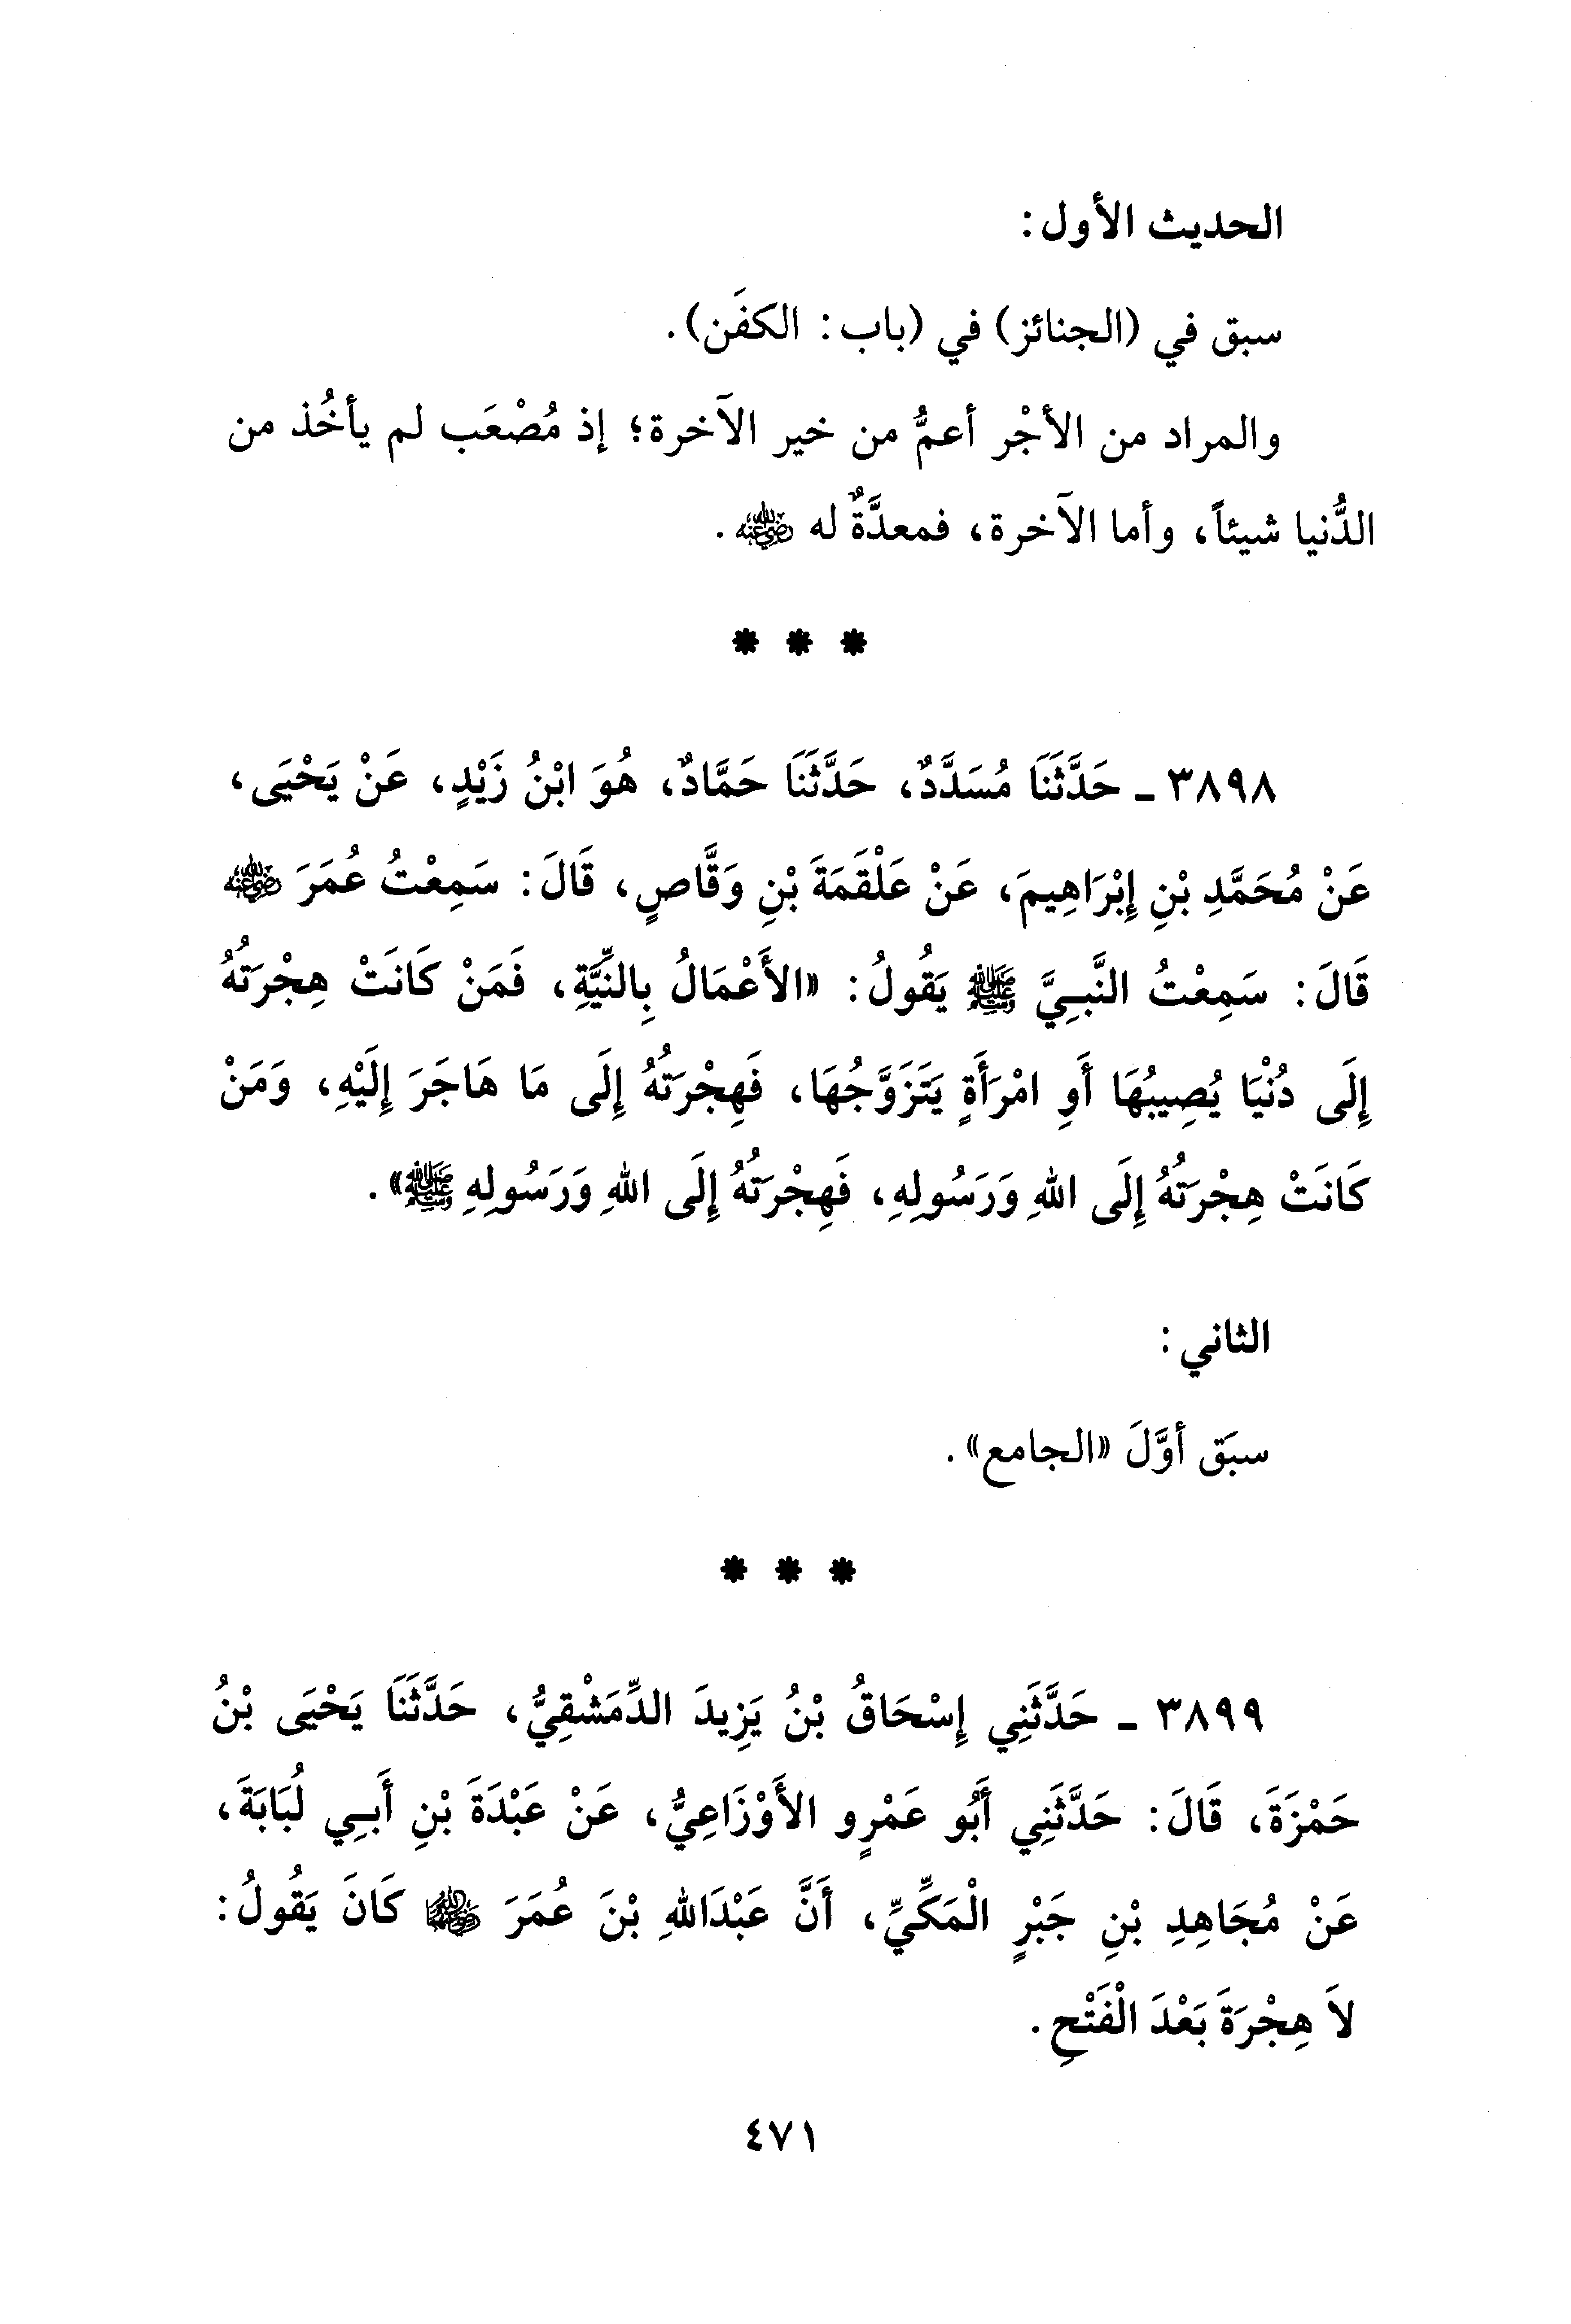 الحديث الأول:
سبق في (الجنائز) في (باب: الكفَن).
والمراد من الأجْر أعمُّ من خير الآخرة؛ إذ مُصْعَب لم يأخُذ من
الدُّنيا شيئاً، وأما الآخرة، فمعدَّةٌ له رضي الله عنه.
* * *
٣٨٩٨ ـ حَدَّثَنَا مُسَدَّدٌ، حَدَّثَنَا حَمَّادٌ، هُوَ ابْنُ زَيْدٍ، عَنْ يَحْيَى،
عَنْ مُحَمَّدِ بْنِ إِبْرَاهِيمَ، عَنْ عَلْقَمَةَ بْنِ وَقَّاصٍ، قَالَ: سَمِعْتُ عُمَرَ رضي الله عنه
قَالَ: سَمِعْتُ النَّبِيَّ ﷺ يَقُولُ: «الأَعْمَالُ بِالنِّيَّةِ، فَمَنْ كَانَتْ هِجْرَتُهُ
إِلَى دُنْيَا يُصِيبُهَا أَوِ امْرَأَةٍ يَتَزَوَّجُهَا، فَهِجْرَتُهُ إِلَى مَا هَاجَرَ إِلَيْهِ، وَمَنْ
كَانَتْ هِجْرَتُهُ إِلَى اللهِ وَرَسُولِهِ، فَهِجْرَتُهُ إِلَى اللهِ وَرَسُولِهِ ﷺ».
الثاني:
سبَق أوَّلَ «الجامع».
* * *
٣٨٩٩ ـ حَدَّثَنِي إِسْحَاقُ بْنُ يَزِيدَ الدِّمَشْقِيُّ، حَدَّثَنَا يَحْيَى بْنُ
حَمْزَةَ، قَالَ: حَدَّثَنِي أَبُو عَمْرٍو الأَوْزَاعِيُّ، عَنْ عَبْدَةَ بْنِ أَبِي لُبَابَةَ،
عَنْ مُجَاهِدِ بْنِ جَبْرٍ الْمَكِّيِّ، أَنَّ عَبْدَاللهِ بْنَ عُمَرَ رضي الله عنهما كَانَ يَقُولُ:
لاَ هِجْرَةَ بَعْدَ الْفَتْحِ.
٤٧١